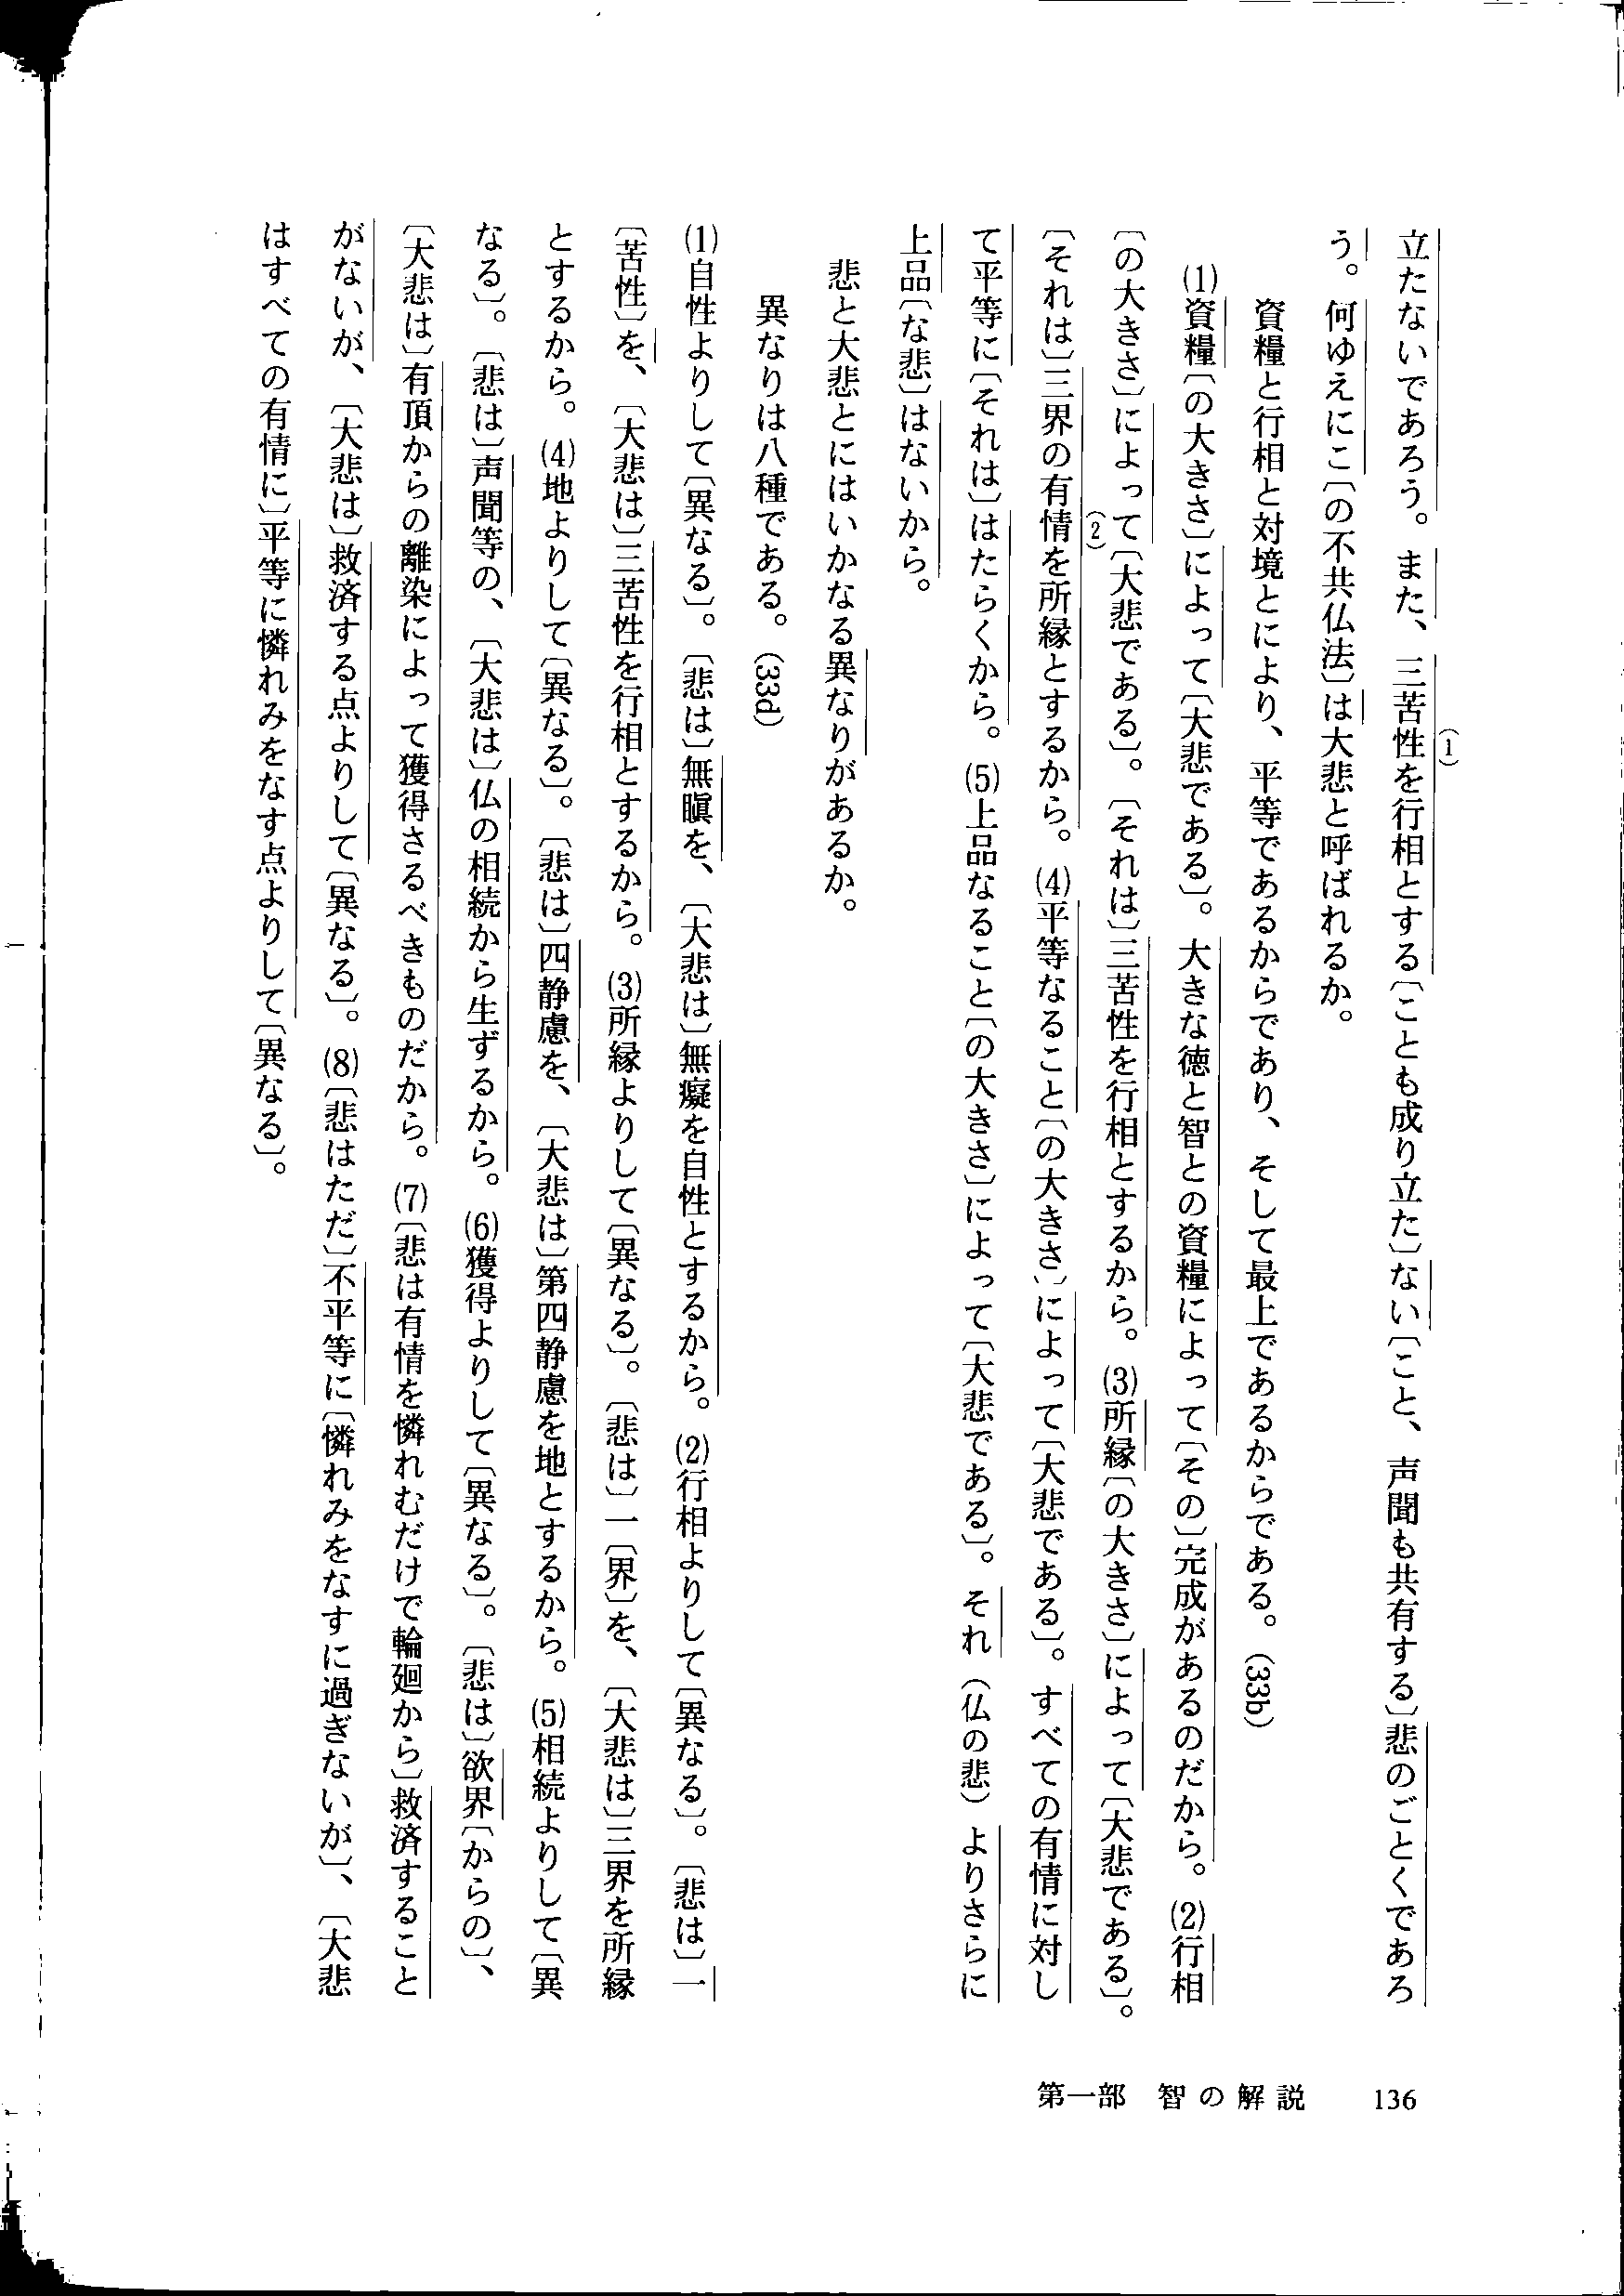 立たないであろう。また、三苦性を行相とする〔ことも成り立た〕ない〔こと、声聞も共有する〕悲のごとくであろ
(1)
う。何ゆえにこ〔の不共仏法〕は大悲と呼ばれるか。
資糧と行相と対境とにより、平等であるからであり、そして最上であるからである。(33b)
(1)資糧〔の大きさ〕によって〔大悲である〕。大きな徳と智との資糧によって〔その〕完成があるのだから。(2)行相
〔の大きさ〕によって〔大悲である〕。〔それは〕三苦性を行相とするから。(3)所縁〔の大きさ〕によって〔大悲である〕。
(2)
〔それは〕三界の有情を所縁とするから。(4)平等なること〔の大きさ〕によって〔大悲である〕。すべての有情に対し
て平等に〔それは〕はたらくから。(5)上品なること〔の大きさ〕によって〔大悲である〕。それ（仏の悲）よりさらに
上品〔な悲〕はないから。
悲と大悲とにはいかなる異なりがあるか。
異なりは八種である。(33d)
(1)自性よりして〔異なる〕。〔悲は〕無瞋を、〔大悲は〕無癡を自性とするから。(2)行相よりして〔異なる〕。〔悲は〕一
〔苦性〕を、〔大悲は〕三苦性を行相とするから。(3)所縁よりして〔異なる〕。〔悲は〕一〔界〕を、〔大悲は〕三界を所縁
とするから。(4)地よりして〔異なる〕。〔悲は〕四静慮を、〔大悲は〕第四静慮を地とするから。(5)相続よりして〔異
なる〕。〔悲は〕声聞等の、〔大悲は〕仏の相続から生ずるから。(6)獲得よりして〔異なる〕。〔悲は〕欲界〔からの〕、
〔大悲は〕有頂からの離染によって獲得さるべきものだから。(7)〔悲は有情を憐れむだけで輪廻から〕救済すること
がないが、〔大悲は〕救済する点よりして〔異なる〕。(8)〔悲はただ〕不平等に〔憐れみをなすに過ぎないが〕、〔大悲
はすべての有情に〕平等に憐れみをなす点よりして〔異なる〕。
第一部 智の解説 136